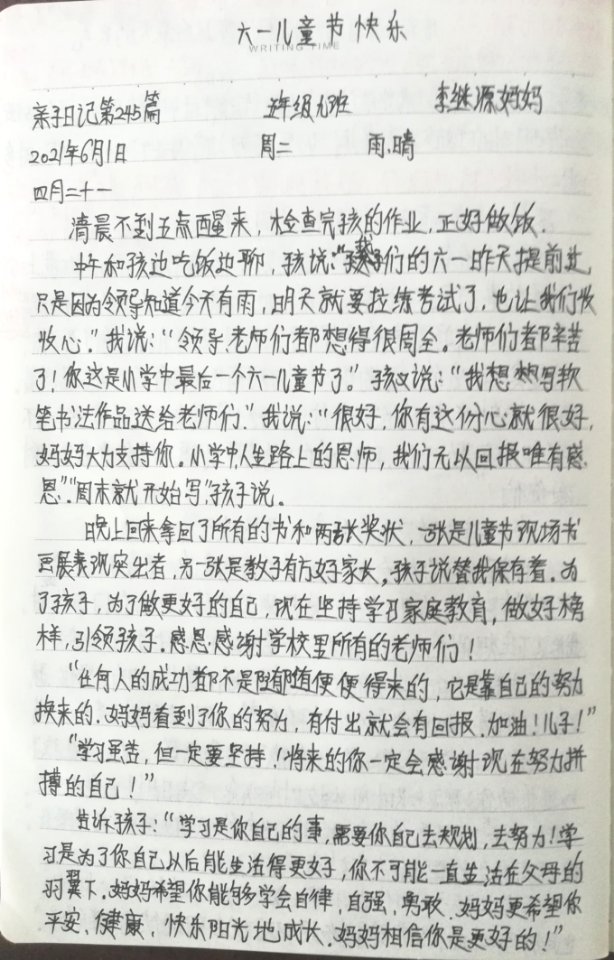 六一儿童节快乐
WRITING TIME
亲子日记第245篇 班级九班 李继源妈妈
2021年6月1日 周二 雨.晴
四月二十一
清晨不到五点醒来,检查完孩的作业,正好做饭.
中午和孩边吃饭边聊,孩说:"我们的六一昨天提前过,
只是因为领导知道今天有雨,明天就要拉练考试了,也让我们收
收心."我说:"领导、老师们都想得很周全。老师们都辛苦
了!你这是小学中最后一个六一儿童节了。"孩又说:"我想写软
笔书法作品送给老师们."我说:"很好,你有这份心就很好,
妈妈大力支持你。小学中,人生路上的恩师,我们无以回报唯有感
恩""周末就开始写,"孩子说。
晚上回来拿回了所有的书和两张奖状,一张是儿童节现场书
画展表现突出者,另一张是教子有方好家长,孩子说替我保存着。为
了孩子,为了做更好的自己,现在坚持学习家庭教育,做好榜
样,引领孩子.感恩感谢学校里所有的老师们!
"任何人的成功都不是随随便便得来的,它是靠自己的努力
换来的.妈妈看到了你的努力,有付出就会有回报.加油!儿子!"
"学习虽苦,但一定要坚持!将来的你一定会感谢现在努力拼
搏的自己!"
告诉孩子:"学习是你自己的事,需要你自己去规划,去努力!学
习是为了你自己以后能生活得更好,你不可能一直生活在父母的
羽翼下.妈妈希望你能够多学会自律,自强,勇敢.妈妈更希望你
平安,健康,快乐阳光地成长.妈妈相信你是更好的!"